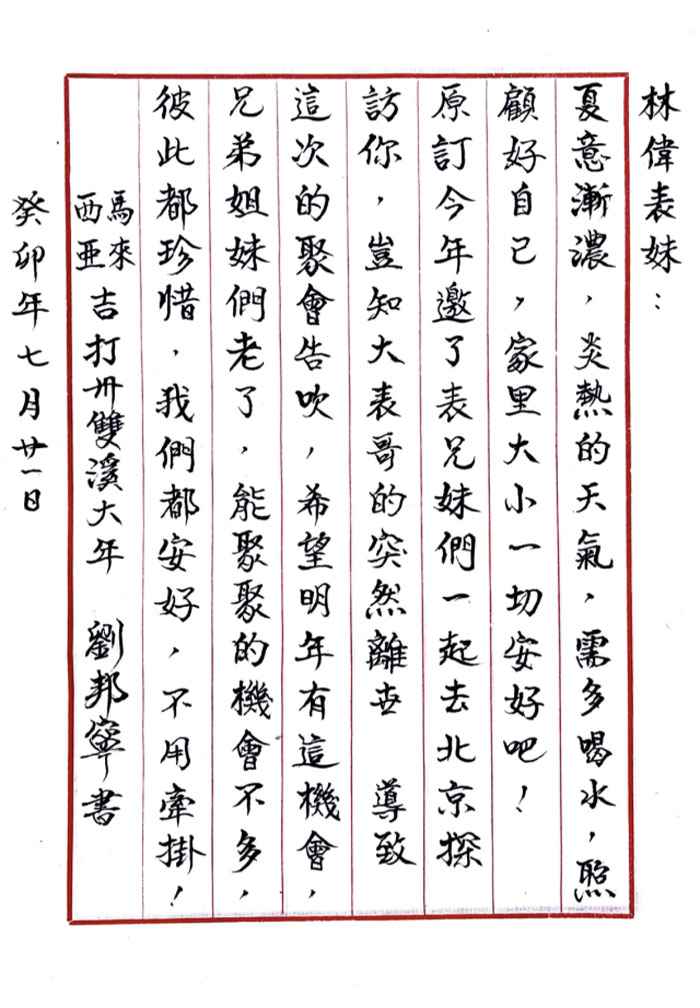 林偉表妹：
夏意漸濃，炎熱的天氣，需多喝水，照
顧好自己，家里大小一切安好吧！
原訂今年邀了表兄妹們一起去北京探
訪你，豈知大表哥的突然離世 導致
這次的聚會告吹，希望明年有這機會，
兄弟姐妹們老了，能聚聚的機會不多，
彼此都珍惜，我們都安好，不用牽掛！
馬來西亜吉打卅雙溪大年 劉邦寧書
癸卯年七月廿一日